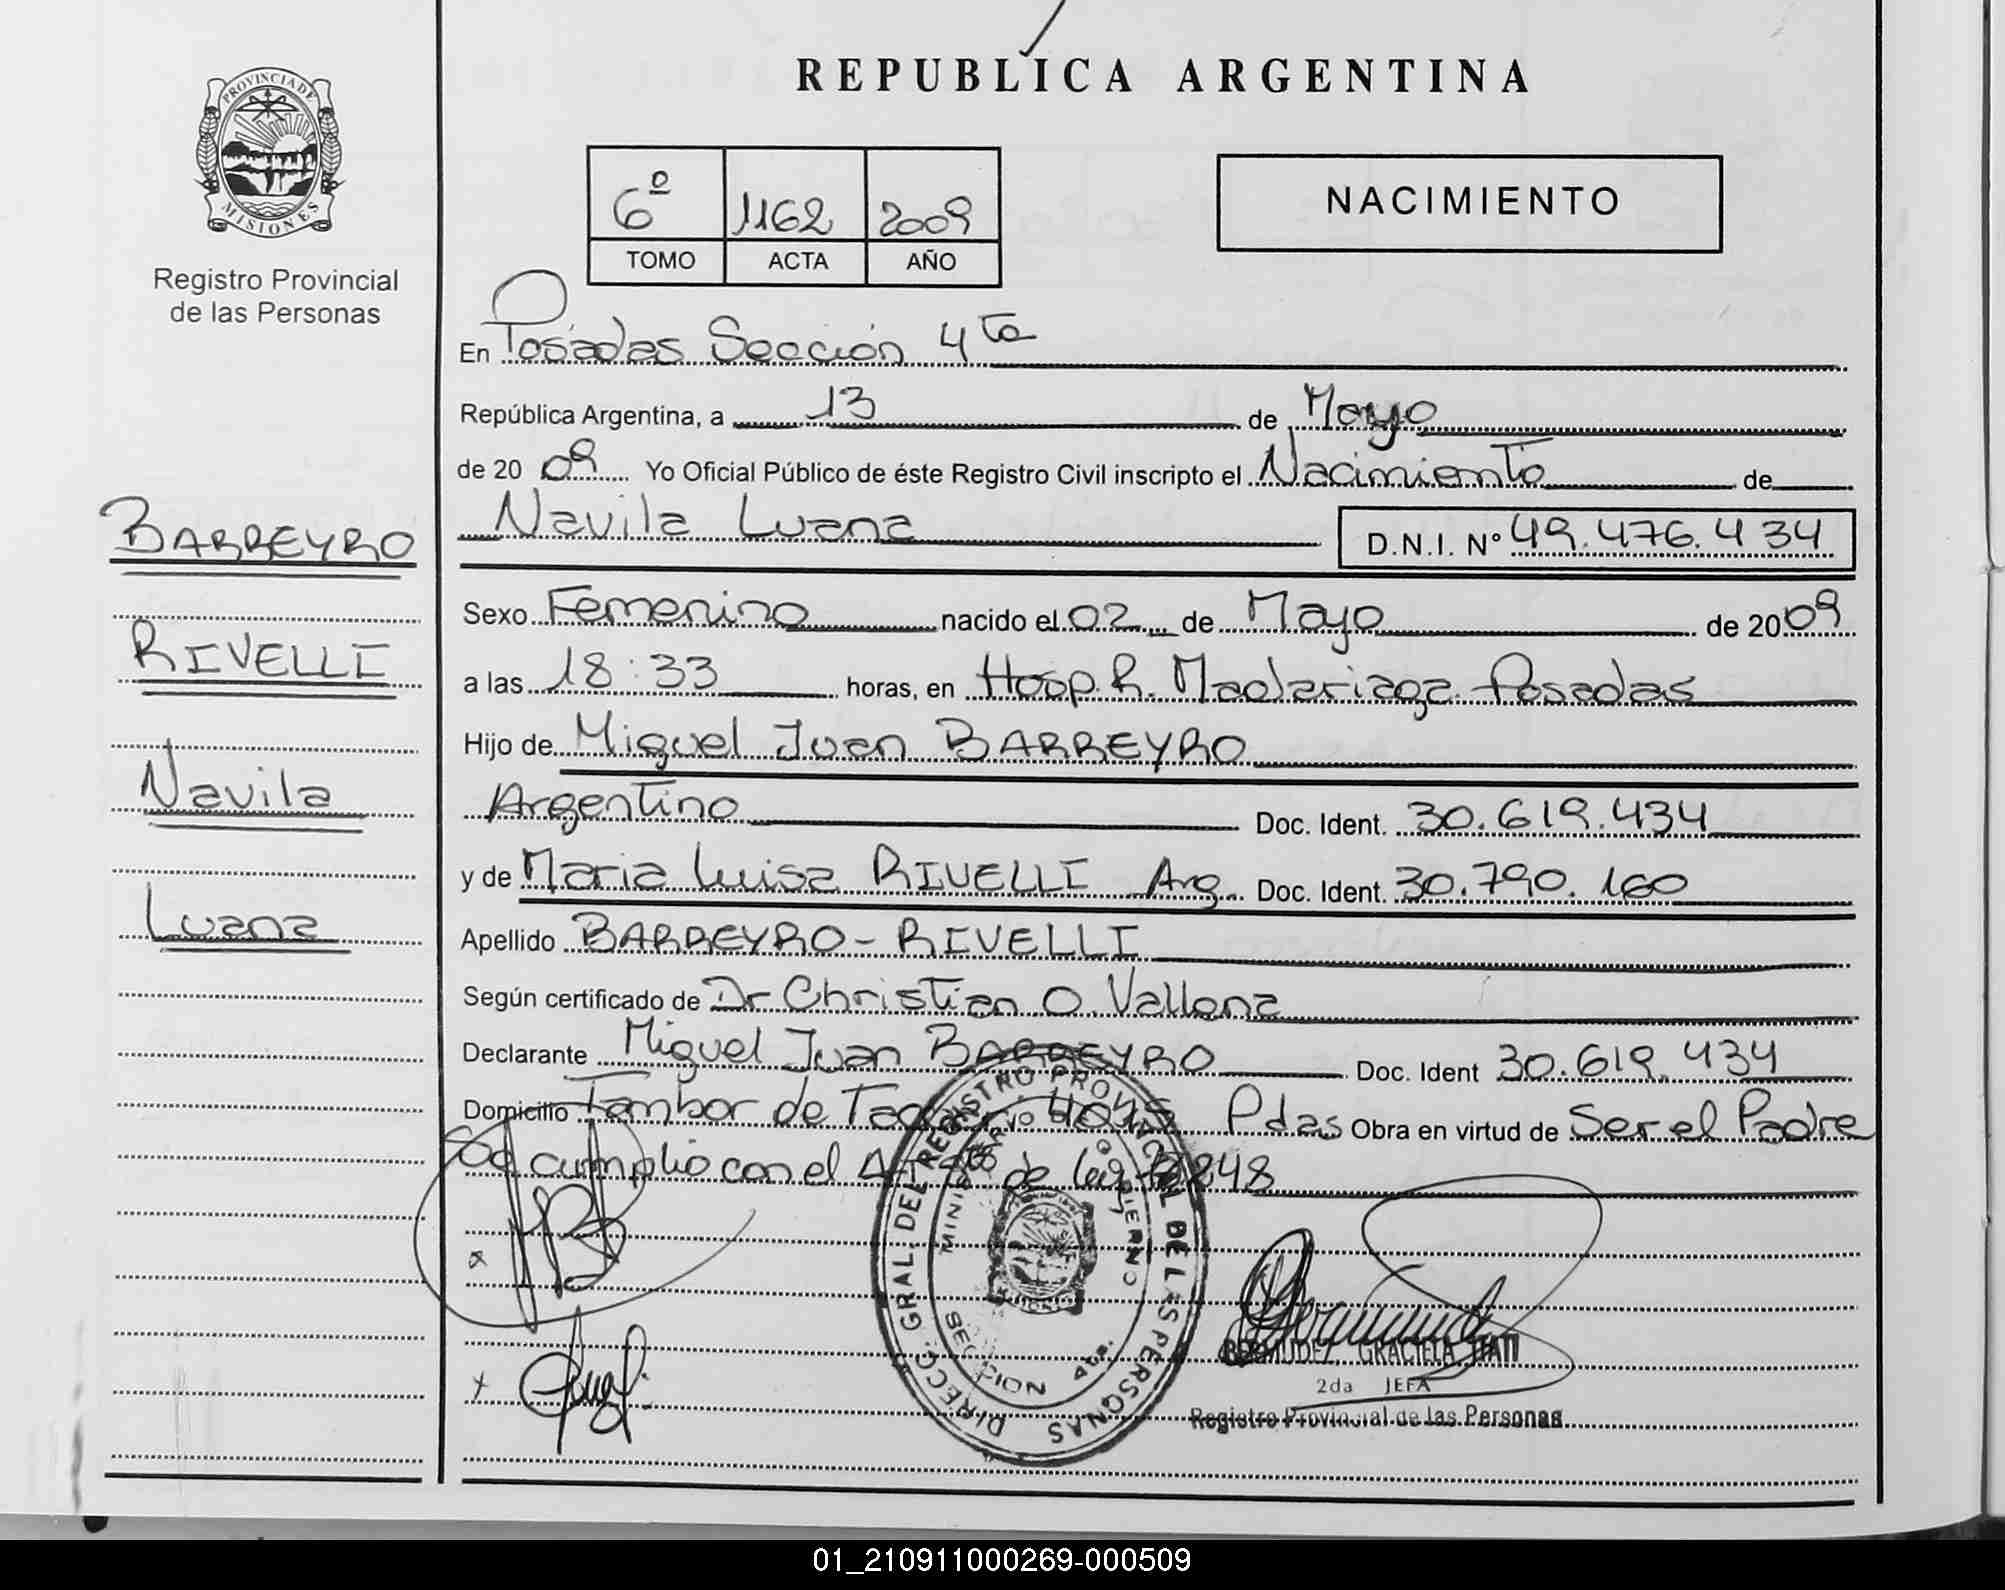 REPUBLICA ARGENTINA
PROVINCIA DE
MISIONES
Registro Provincial
de las Personas
6º 1162 2009
TOMO ACTA AÑO
NACIMIENTO
En Posadas Sección 4ta
República Argentina, a 13 de Mayo
de 2009 Yo Oficial Público de éste Registro Civil inscripto el Nacimiento de
Navila Luana D.N.I. Nº 49.476.434
Sexo Femenino nacido el 02 de Mayo de 2009
a las 18:33 horas, en Hosp. R. Madariaga Posadas
Hijo de Miguel Juan BARREYRO
Argentino Doc. Ident. 30.619.434
y de Maria Luisa RIVELLI Arg. Doc. Ident. 30.790.160
Apellido BARREYRO - RIVELLI
Según certificado de Dr Christian O. Vallona
Declarante Miguel Juan BARREYRO Doc. Ident 30.619.434
Domicilio Tambor de Pdas Obra en virtud de Ser el Padre
cumplio con el de ley
BARREYRO
RIVELLI
Navila
Luana
DIRECC. GRAL. DEL REGISTRO PROVINCIAL DE LAS PERSONAS
MINISTERIO DE GOBIERNO
SECCION 4ta.
BERMUDEZ GRACIELA ITATI
2da JEFA
Registro Provincial de las Personas
01_210911000269-000509